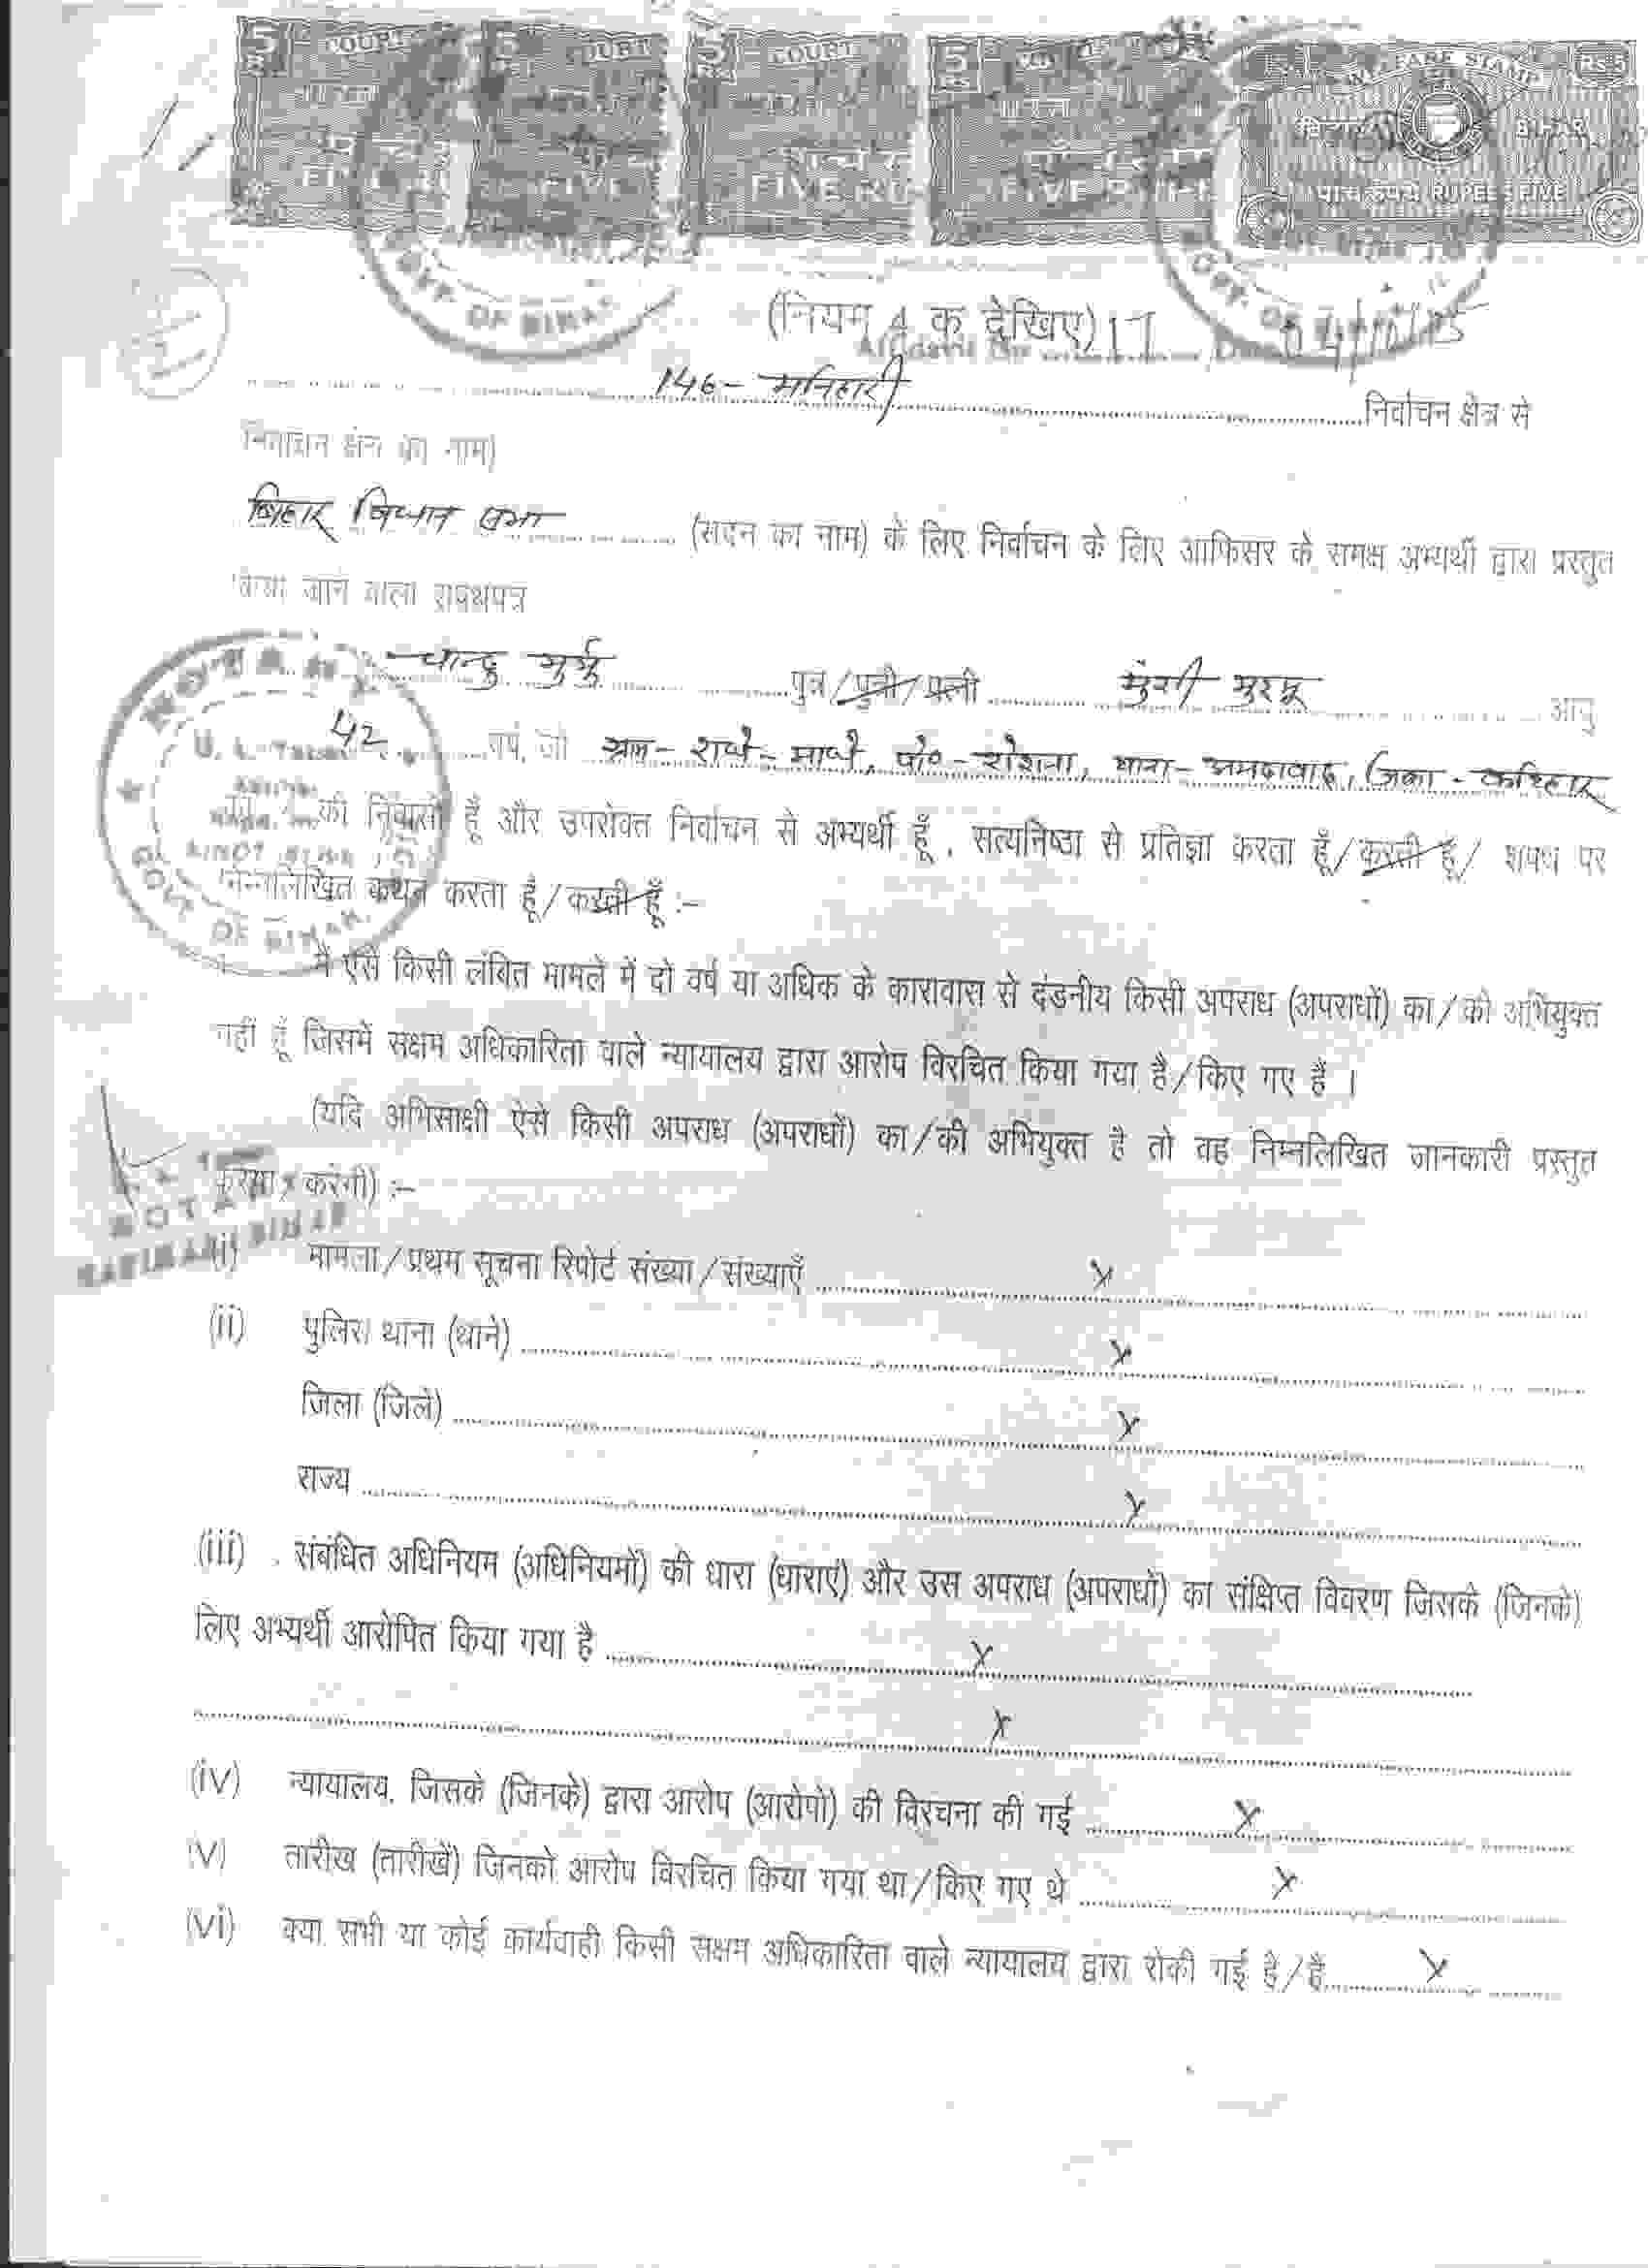 5 COURT 5 COURT 5 COURT 5 WELFARE STAMP RS 5
BIHAR
FIVE FIVE FIVE FIVE पांच रुपये RUPEES FIVE
GOVT. OF BIHAR
(नियम 4 क देखिए)
146- मनिहारी निर्वाचन क्षेत्र से
निर्वाचन क्षेत्र का नाम)
बिहार विधान सभा (सदन का नाम) के लिए निर्वाचन के लिए आफिसर के समक्ष अभ्यर्थी द्वारा प्रस्तुत
किया जाने वाला शपथपत्र
चान्दु मुर्मु पुत्र/पुत्री/पत्नी मुंशी मुरमू आयु
42 वर्ष, जो ग्राम- राधे-माधे, पो०-रोशना, थाना-अमदाबाद, जिला-कटिहार
का/की निवासी हूँ और उपरोक्त निर्वाचन से अभ्यर्थी हूँ, सत्यनिष्ठा से प्रतिज्ञा करता हूँ/करती हूँ/ शपथ पर
निम्नलिखित कथन करता हूँ/करती हूँ :–
NOTARY
GOVT. OF BIHAR
मैं ऐसे किसी लंबित मामले में दो वर्ष या अधिक के कारावास से दंडनीय किसी अपराध (अपराधों) का/की अभियुक्त
नहीं हूँ जिसमें सक्षम अधिकारिता वाले न्यायालय द्वारा आरोप विरचित किया गया है/किए गए हैं ।
(यदि अभिसाक्षी ऐसे किसी अपराध (अपराधों) का/की अभियुक्त है तो वह निम्नलिखित जानकारी प्रस्तुत
करेगा/करेगी) :–
NOTARY
(i) मामला/प्रथम सूचना रिपोर्ट संख्या/संख्याएँ x
(ii) पुलिस थाना (थाने) x
जिला (जिले) x
राज्य x
(iii) संबंधित अधिनियम (अधिनियमों) की धारा (धाराएं) और उस अपराध (अपराधों) का संक्षिप्त विवरण जिसके (जिनके)
लिए अभ्यर्थी आरोपित किया गया है x
x
(iv) न्यायालय, जिसके (जिनके) द्वारा आरोप (आरोपों) की विरचना की गई x
(v) तारीख (तारीखें) जिनको आरोप विरचित किया गया था/किए गए थे x
(vi) क्या सभी या कोई कार्यवाही किसी सक्षम अधिकारिता वाले न्यायालय द्वारा रोकी गई है/हैं x